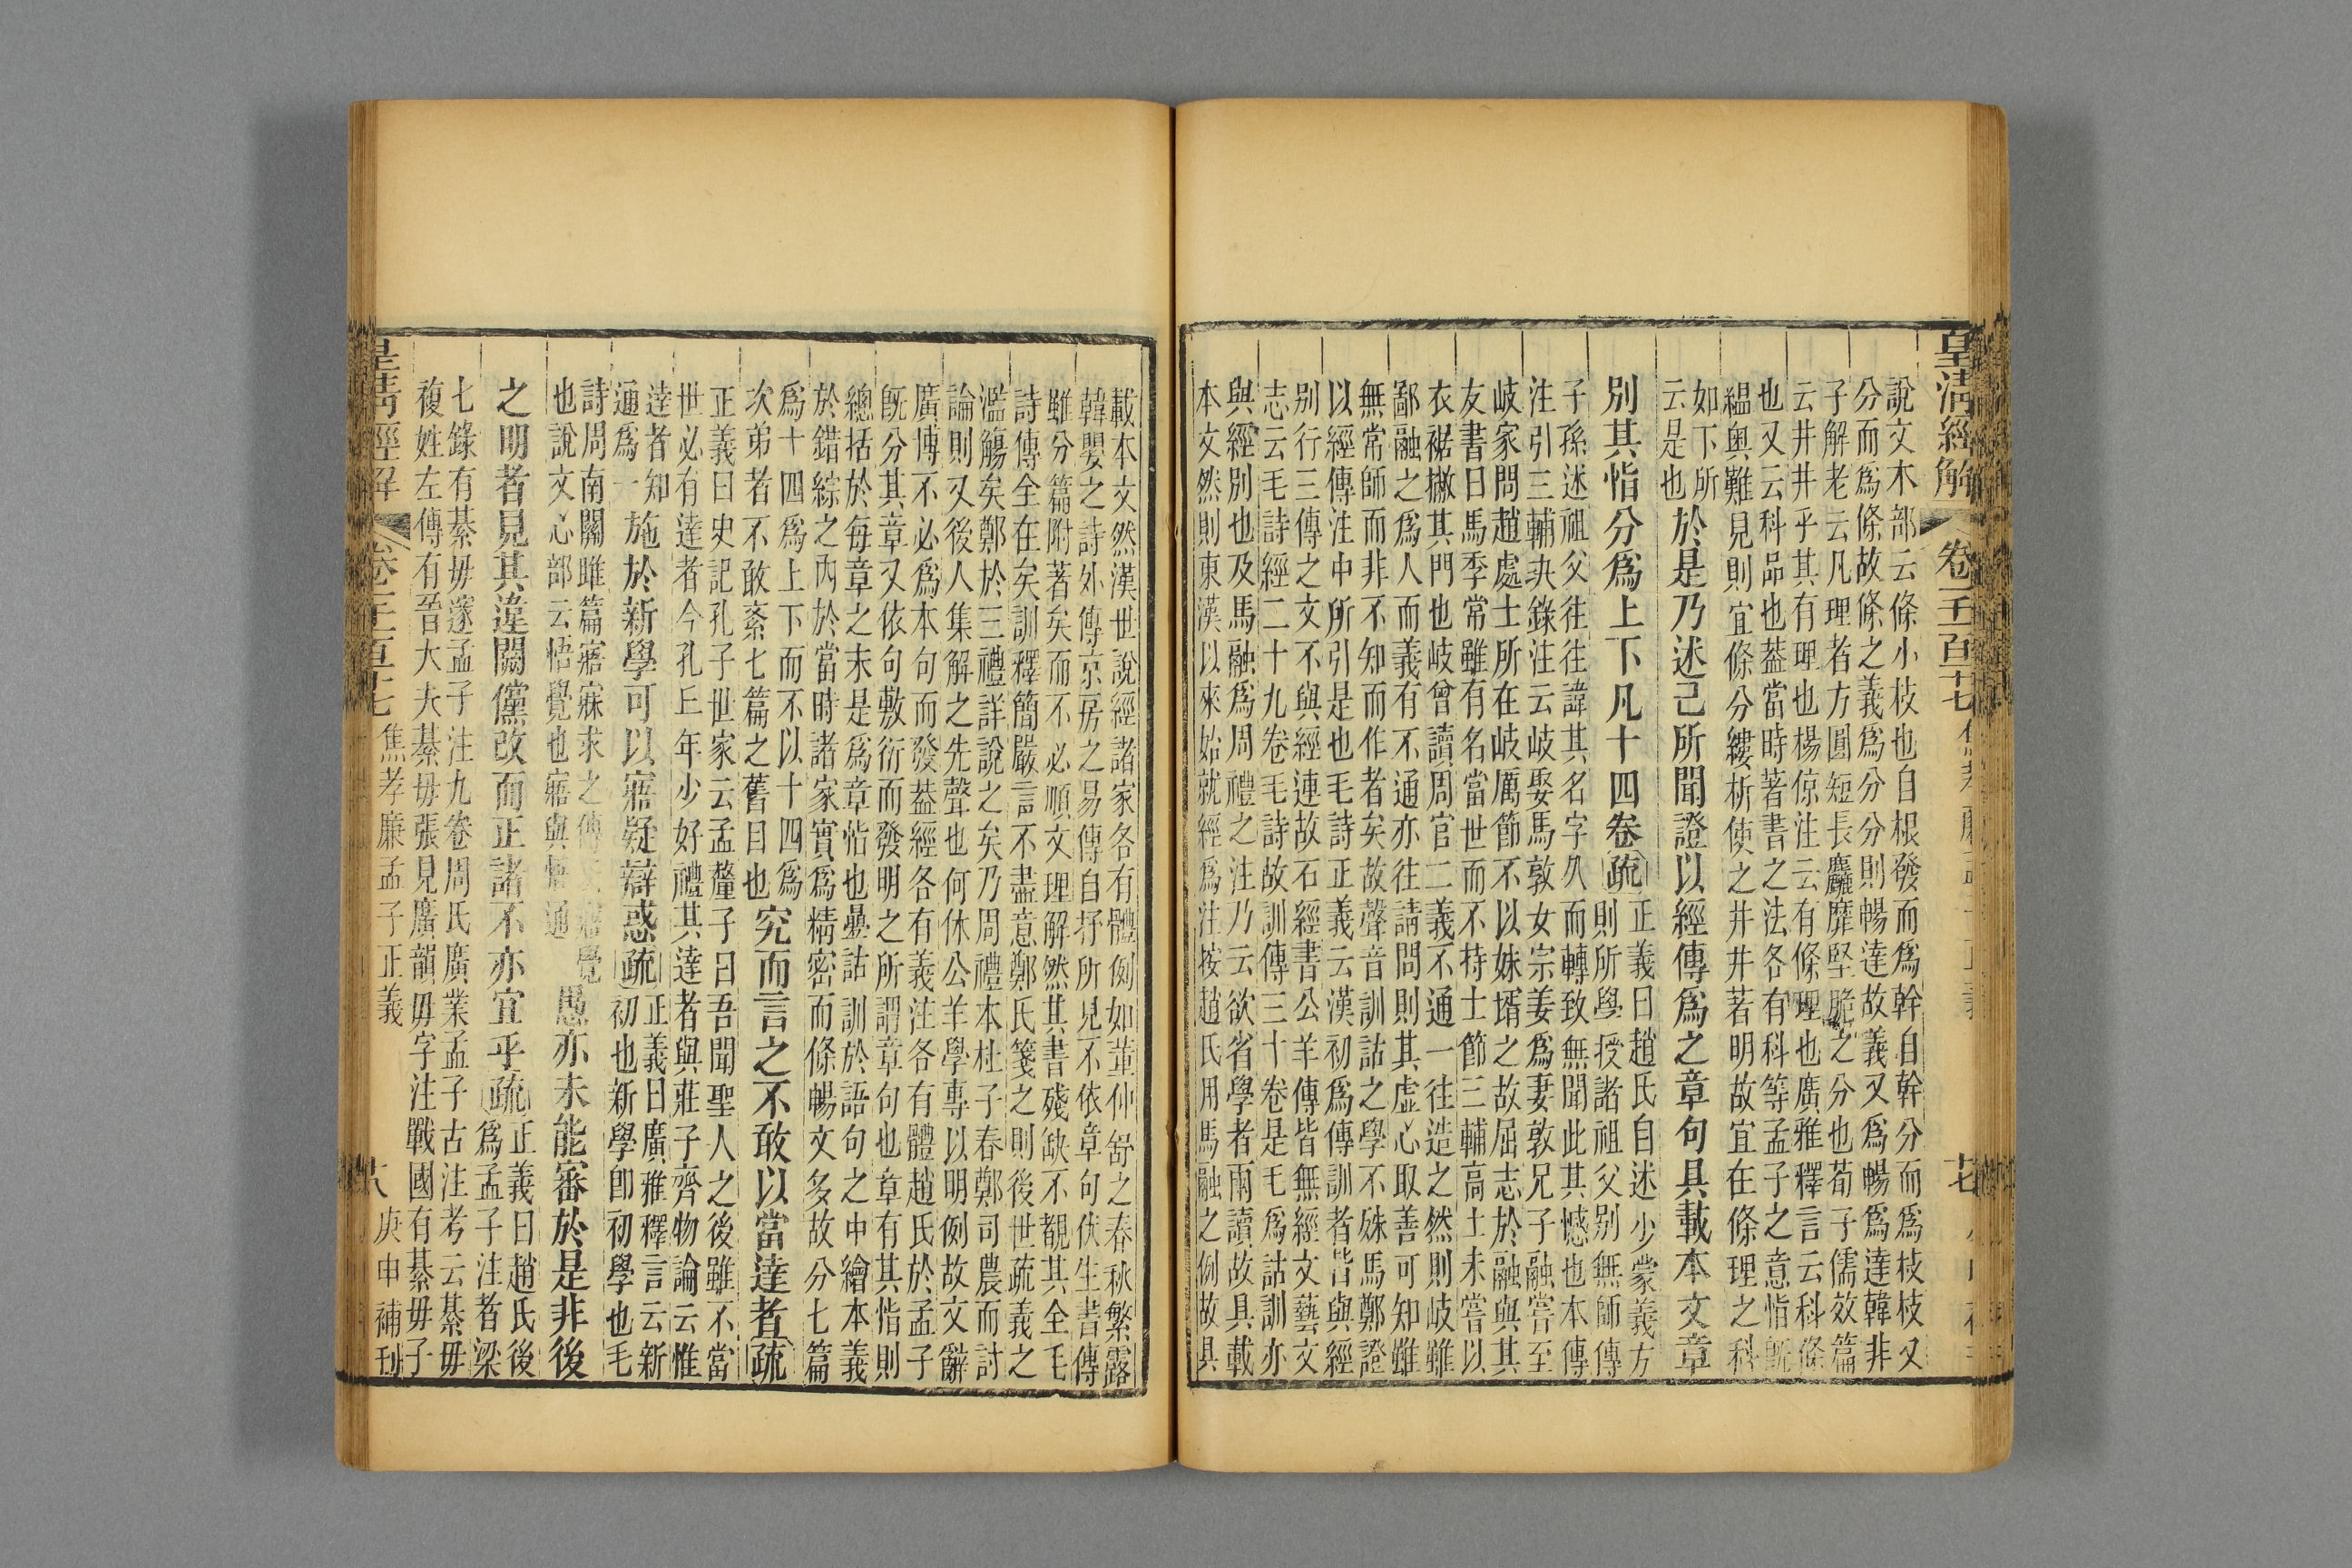 皇清經解 卷一千百十七 十七
說文木部云條小枝也自根發而爲幹自幹分而爲枝枝又
分而爲條故條之義爲分分則暢達故義又爲暢爲達韓非
子解老云凡理者方圓短長麤靡堅脆之分也荀子儒效篇
云井井乎其有理也楊倞注云有條理也廣雅釋言云科條
也又云科品也葢當時著書之法各有科等孟子之意恉既
縕奧難見則宜條分縷析使之井井著明故宜在條理之科
如下所
云是也
於是乃述己所聞證以經傳爲之章句具載本文章
別其恉分爲上下凡十四卷疏
正義曰趙氏自述少蒙義方
則所學授諸祖父別無師傳
子孫述祖父往往諱其名字久而轉致無聞此其憾也本傳
注引三輔決錄注云岐娶馬敦女宗姜爲妻敦兄子融嘗至
岐家問趙處士所在岐厲節不以妹壻之故屈志於融與其
友書曰馬季常雖有名當世而不持士節三輔高士未嘗以
衣裾撇其門也岐曾讀周官二義不通一往造之然則岐雖
鄙融之爲人而義有不通亦往請問則其虛心取善可知雖
無常師而非不知而作者矣故聲音訓詁之學不殊馬鄭證
以經傳注中所引是也毛詩正義云漢初爲傳訓者皆與經
別行三傳之文不與經連故石經書公羊傳皆無經文藝文
志云毛詩經二十九卷毛詩故訓傳三十卷是毛爲詁訓亦
與經別也及馬融爲周禮之注乃云欲省學者兩讀故具載
本文然則東漢以來始就經爲注按趙氏用馬融之例故具
載本文然漢世說經諸家各有體例如董仲舒之春秋繁露
韓嬰之詩外傳京房之易傳自抒所見不依章句伏生書傳
雖分篇附著矣而不必順文理解然其書殘缺不覩其全毛
詩傳全在矣訓釋簡嚴言不盡意鄭氏箋之則後世疏義之
濫觴矣鄭於三禮詳說之矣乃周禮本杜子春鄭司農而討
論則又後人集解之先聲也何休公羊學專以明例故文辭
廣博不必爲本句而發葢經各有義注各有體趙氏於孟子
既分其章又依句敷衍而發明之所謂章句也章有其恉則
總括於每章之末是爲章恉也曡詁訓於語句之中繪本義
於錯綜之內於當時諸家實爲精密而條暢文多故分七篇
爲十四爲上下而不以十四爲
次弟者不敢紊七篇之舊目也
究而言之不敢以當達者疏
正義曰史記孔子世家云孟釐子曰吾聞聖人之後雖不當
世必有達者今孔丘年少好禮其達者與莊子齊物論云惟
達者知
通爲一
施於新學可以寤疑辯惑疏
正義曰廣雅釋言云新
初也新學卽初學也毛
詩周南關雎篇寤寐求之傳云寤覺
也說文心部云悟覺也寤與悟通
愚亦未能審於是非後
之明者見其違闕儻改而正諸不亦宜乎疏
正義曰趙氏後
爲孟子注者梁
七錄有綦毋邃孟子注九卷周氏廣業孟子古注考云綦毋
複姓左傳有晉大夫綦毋張見廣韻毋字注戰國有綦毋子
皇清經解 卷一千百十七 焦孝廉孟子正義 十八 庚申補刊